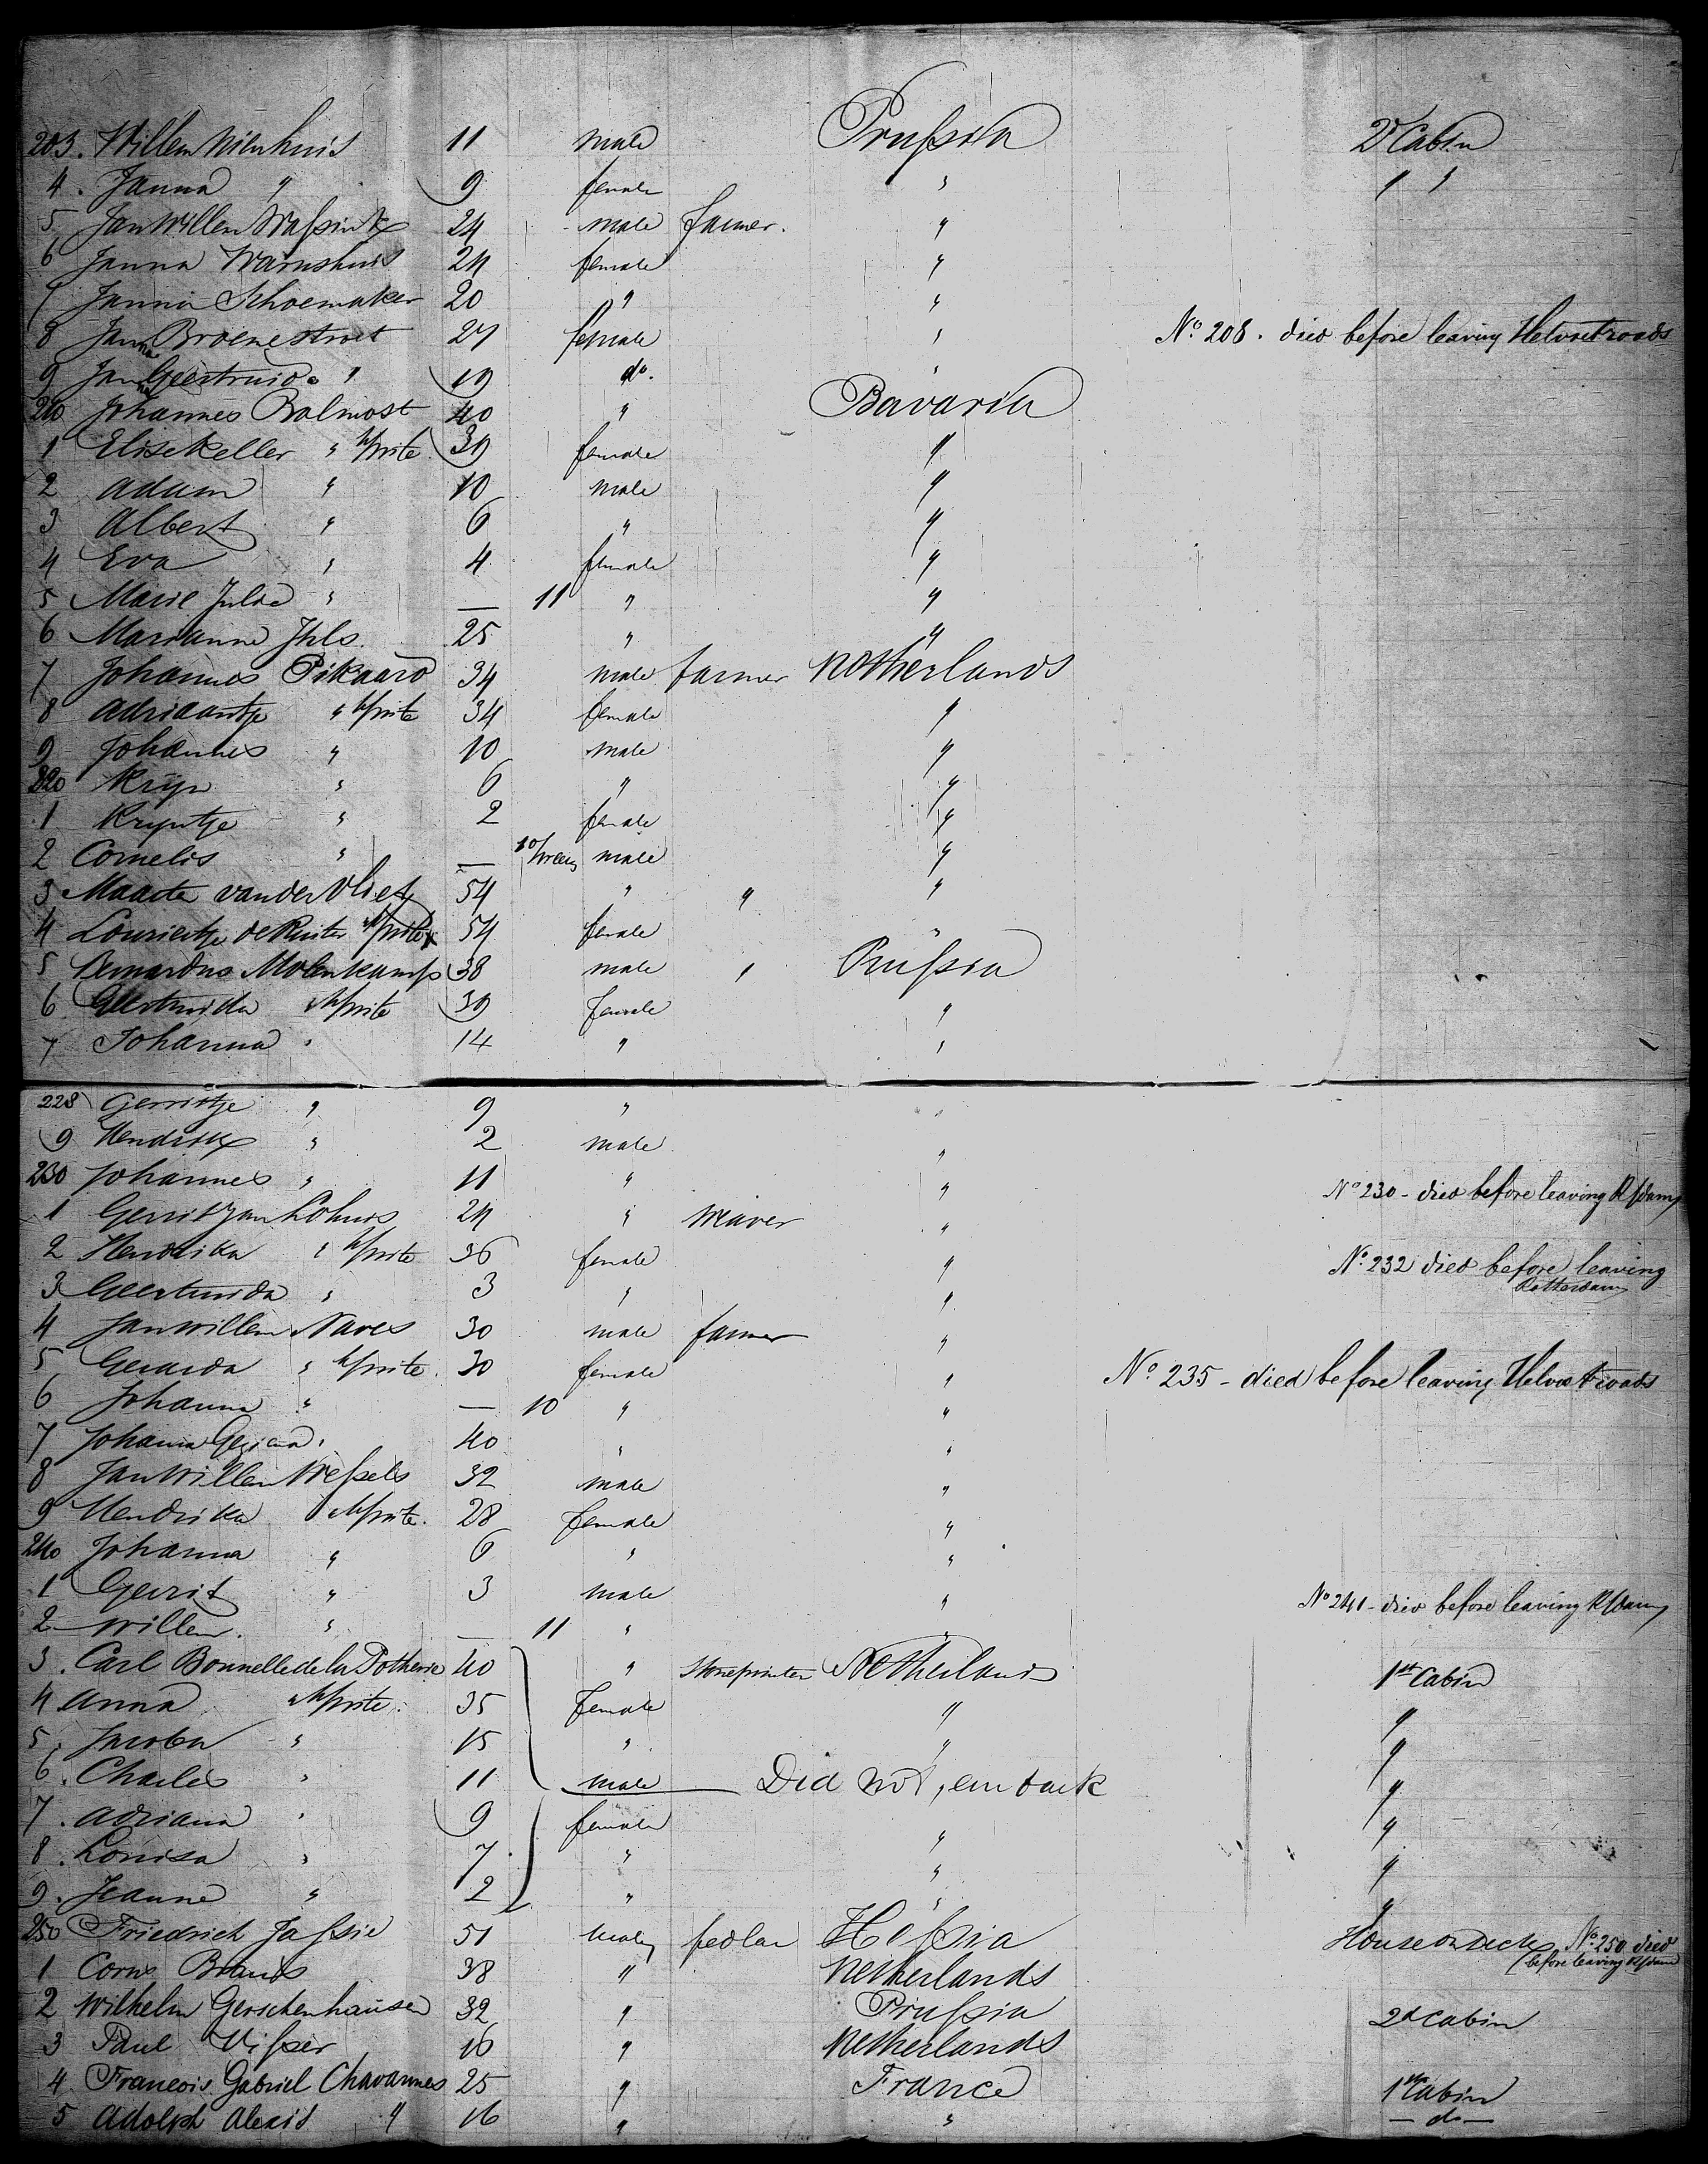 203. Willem Nienhuis 11 male Prußia 2d Cabin
4. Janna " 9 female " " "
5 Jan Willem Waßink 24 male farmer. "
6 Janna Warnshuis 24 female "
7 Janna Schoemaker 20 " "
8 Janna Broenestroet 27 female " No 208. died before leaving Helvoetroads
9 Janna Geertruida " 19 do. "
210 Johannes Balmost 40 " Bavaria
1 Elise Keller " 39 female "
2 Adam " 10 male "
3 Albert " 6 " "
4 Eva " 4 female "
5 Marie Julia " — 11 " "
6 Marianne Ihls. 25 " "
7 Johannes Pikaard 34 male farmer Netherlands
8 Adriaantje " 34 female "
9 Johannes " 10 male "
220 Kryn " 6 " "
1 Kryntje " 2 female "
2 Cornelis " — 10/weeks male "
3 Maarte van der Vliet 54 " " "
4 Lourientje de Ruiter 54 female "
5 Bernardus Molenkamp 38 male " Prußia
6 Geertruida 39 female "
7 Johanna " 14 " "
228 Gerritje " 9 " "
9 Hendrik " 2 male "
230 Johannes " 11 " " No 230 - died before leaving R/dam
1 Gerrit Jan Lohuis 24 " weaver "
2 Hendrika " 36 female " No. 232 died before leaving
Rotterdam
3 Geertruida " 3 " "
4 Jan Willem Naves 30 male farmer "
5 Gerarda " 30 female " No. 235 - died before leaving Helvoetroads
6 Johanna " — 10 " "
7 Johanna Gezina " 40 " "
8 Jan Willem Weßels 32 male "
9 Hendrika 28 female "
240 Johanna " 6 " "
1 Gerrit " 3 male " No 241 - died before leaving R/dam
2 Willem. " — 11 " "
3. Carl Bonnelle de la Potherie 40 " stoneprinter Netherlands 1st Cabin
4 Anna 35 female " "
5. Jacoba " 15 " " "
6. Charles " 11 male — Did not, embark "
7. Adriana " 9 female " "
8. Louisa " 7 " " "
9. Jeanne " 2 " " "
250 Friedrich Jaßie 51 male pedlar Heßia House on Deck No. 250 died
before leaving R/dam
1 Corns Brands 38 " Netherlands
2 Wilhelm Gerschenhausen 32 " Prußia 2d Cabin
3 Paul Vißer 16 " Netherlands
4 Francois Gabriel Chavannes 25 " France 1st Cabin
5 Adolph Alexis " 16 " " — do —